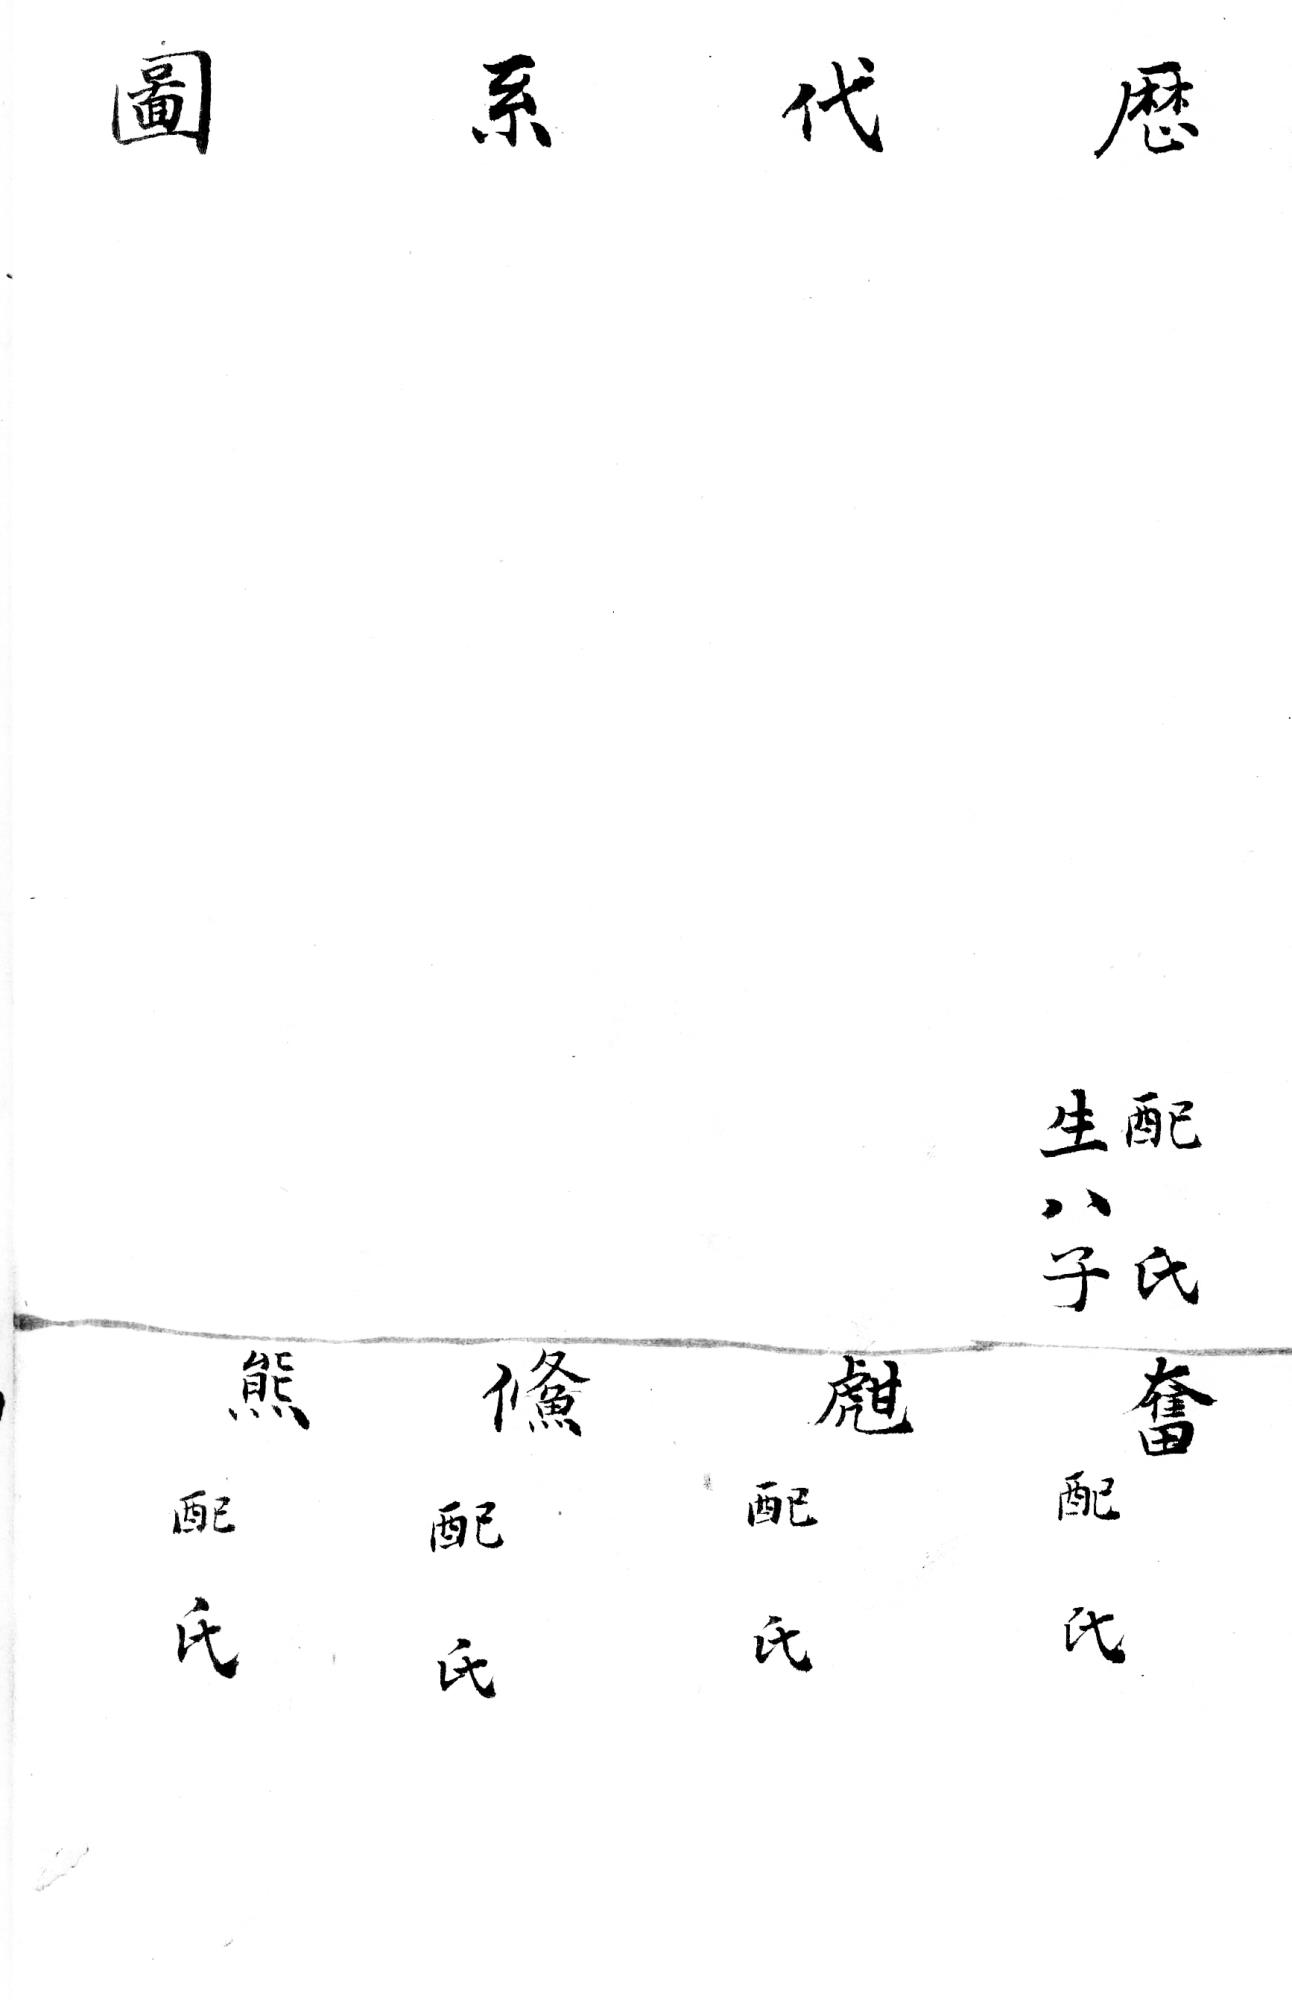 歴代系圖
配氏
生八子
奮
配氏
甝
配氏
鯈
配氏
熊
配氏